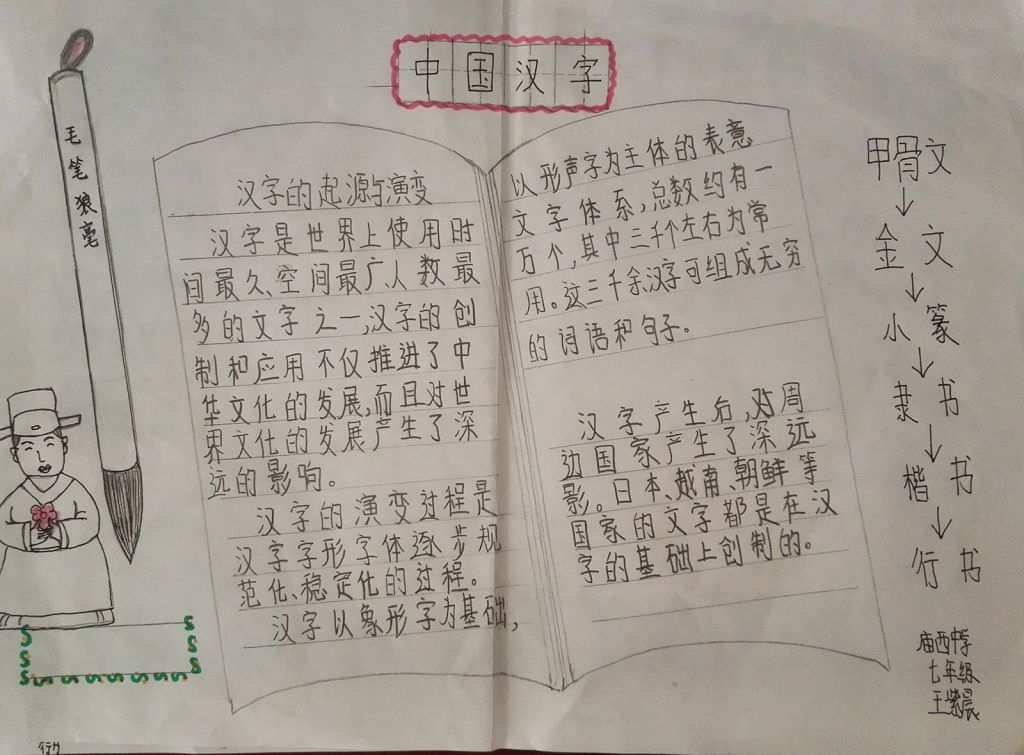 中国汉字
毛笔狼毫
汉字的起源与演变
汉字是世界上使用时
间最久、空间最广、人数最
多的文字之一,汉字的创
制和应用不仅推进了中
华文化的发展,而且对世
界文化的发展产生了深
远的影响。
汉字的演变过程是
汉字字形字体逐步规
范化、稳定化的过程。
汉字以象形字为基础,
以形声字为主体的表意
文字体系,总数约有一
万个,其中三千个左右为常
用。这三千余汉字可组成无穷
的词语和句子。
汉字产生后,对周
边国家产生了深远
影。日本、越南、朝鲜等
国家的文字都是在汉
字的基础上创制的。
甲骨文
↓
金文
↓
小篆
↓
隶书
↓
楷书
↓
行书
庙西中学
七年级
王紫晨